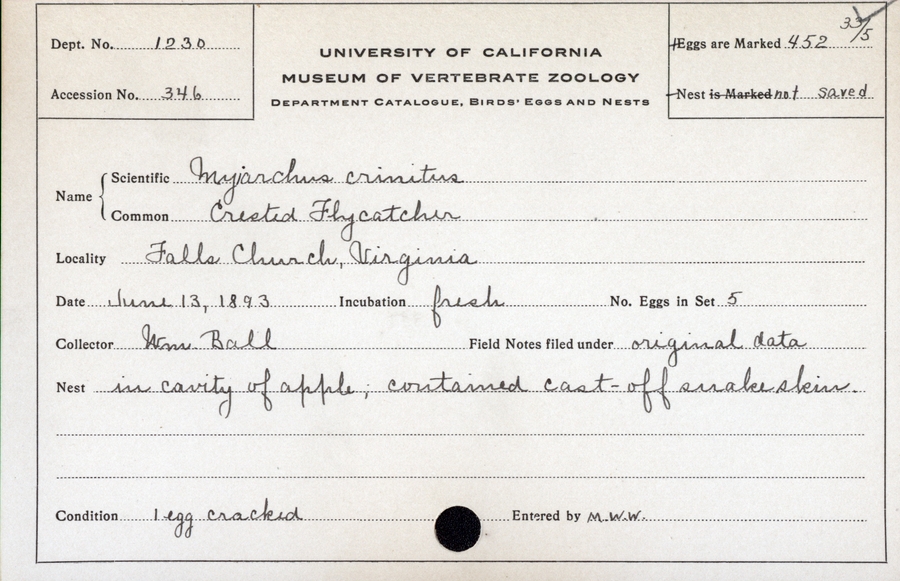 Dept. No. 1230
Accession No. 346
UNIVERSITY OF CALIFORNIA
MUSEUM OF VERTEBRATE ZOOLOGY
DEPARTMENT CATALOGUE, BIRDS' EGGS AND NESTS
Eggs are Marked 452 33/5
Nest is Marked not saved
Name
Scientific Myiarchus crinitus
Common Crested Flycatcher
Locality Falls Church, Virginia
Date June 13, 1893 Incubation fresh No. Eggs in Set 5
Collector Wm. Ball Field Notes filed under original data
Nest in cavity of apple; contained cast-off snakeskin.
Condition 1 egg cracked Entered by M.W.W.